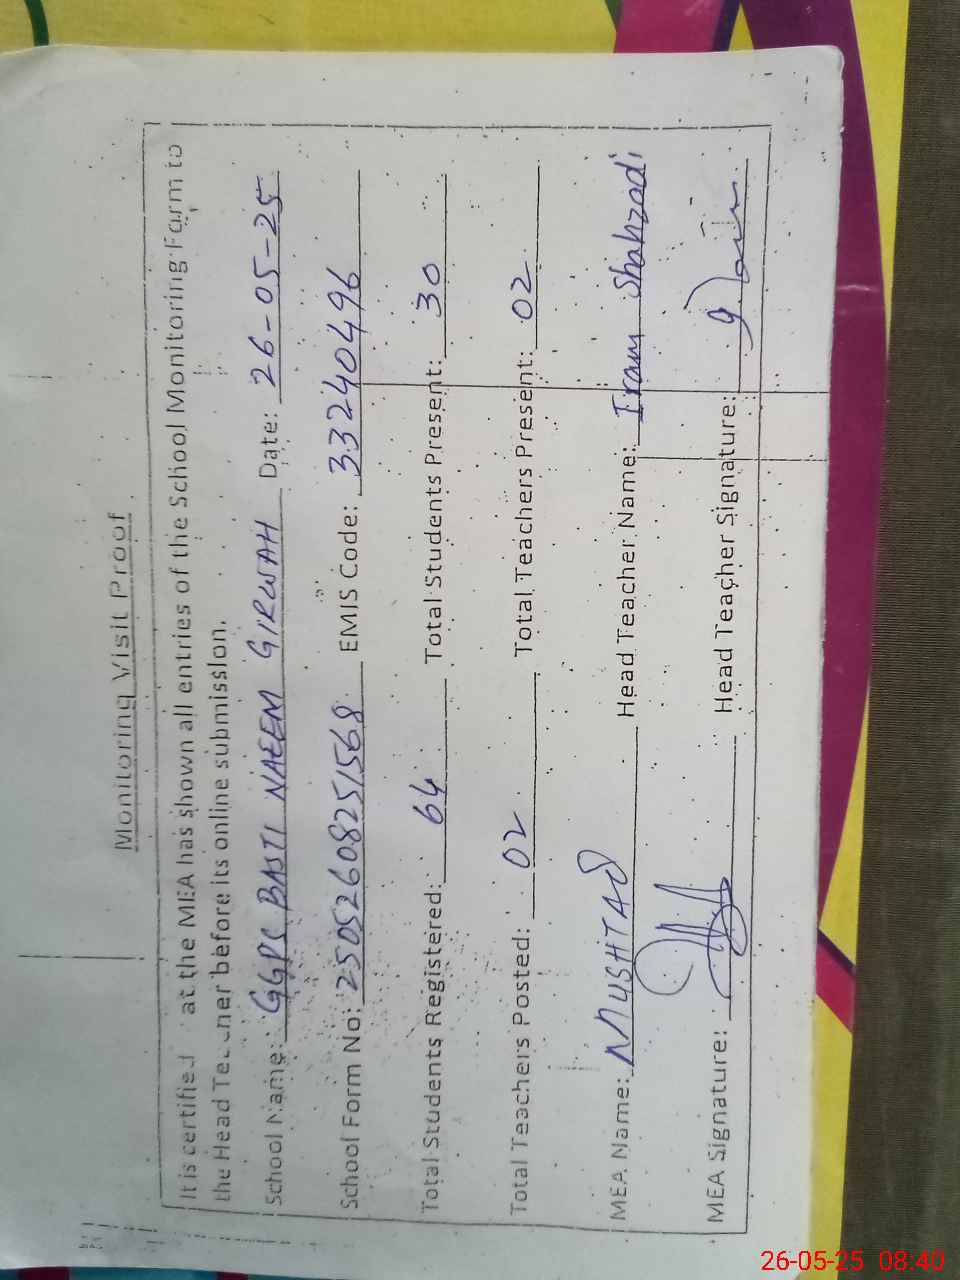 Monitoring Visit Proof
It is certified at the MEA has shown all entries of the School Monitoring Form to
the Head Teacher before its online submission.
School Name: GGPS BASTI NAEEM GIRWAH Date: 26-05-25
School Form No: 25052608251568 EMIS Code: 33240496
Total Students Registered: 64 Total Students Present: 30
Total Teachers Posted: 02 Total Teachers Present: 02
MEA Name: MUSHTAQ Head Teacher Name: Iram Shahzadi
MEA Signature: Head Teacher Signature:
26-05-25 08:40